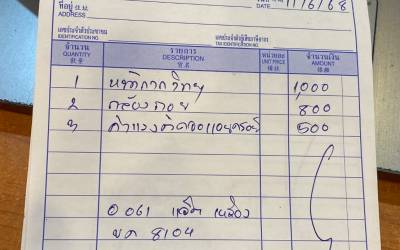 ที่อยู่
ADDRESS
DATE 11/6/68
เลขประจำตัวประชาชน
IDENTIFICATION NO.
เลขประจำตัวผู้เสียภาษีอากร
TAX IDENTIFICATION NO.
จำนวน รายการ หน่วยละ จำนวนเงิน
QUANTITY DESCRIPTION UNIT PRICE AMOUNT
1 หน้ากากวิทยุ 1,000
2 กล้องถอย 800
3 ค่าแรงติดตั้งอุปกรณ์ 500
0061
บค 8104